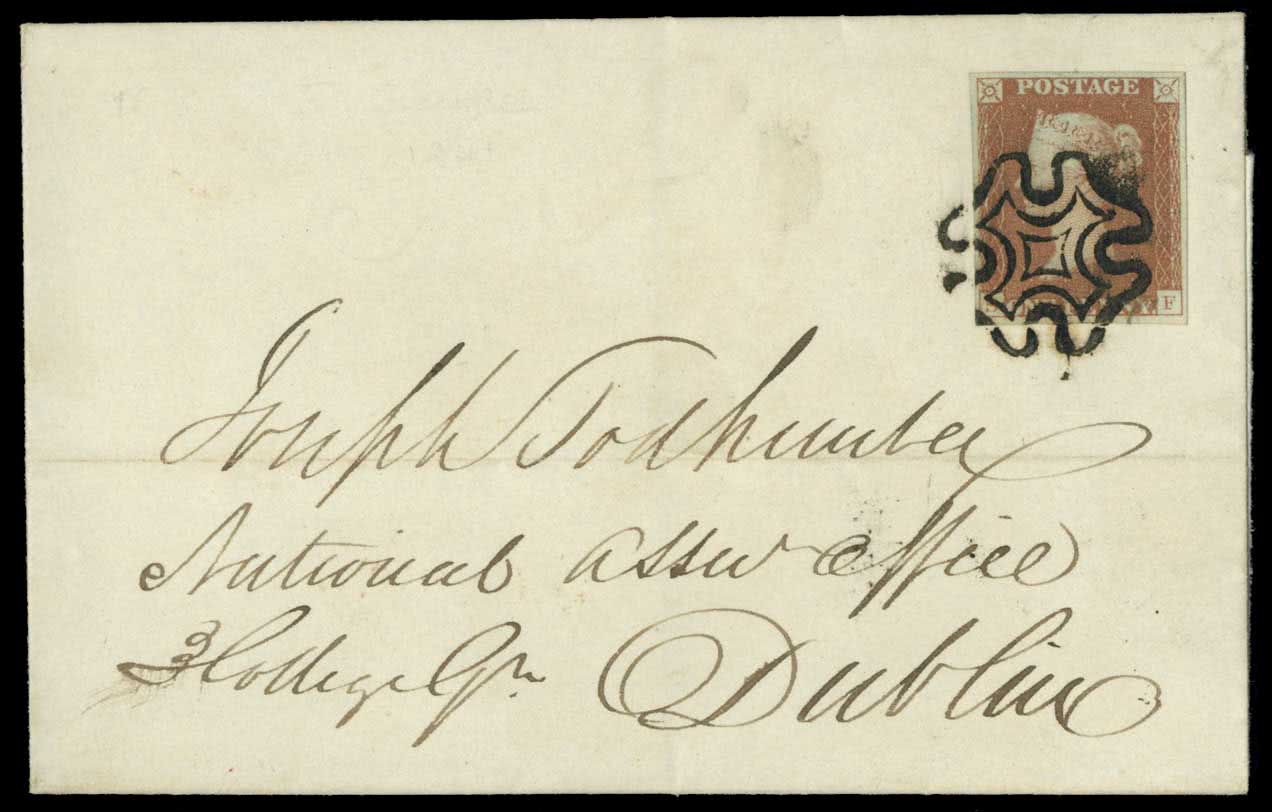 POSTAGE
S ONE PENNY F
Joseph Todhunter
National Assce Office
3 College Gn
Dublin